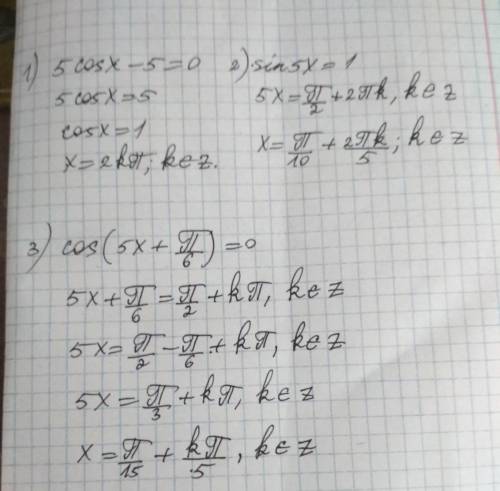 1) 5cosx - 5 = 0
5cosx = 5
cosx = 1
x = 2kπ; k∈z.
2) sin5x = 1
5x = π/2 + 2πk, k∈z
x = π/10 + 2πk/5; k∈z
3) cos(5x + π/6) = 0
5x + π/6 = π/2 + kπ, k∈z
5x = π/2 - π/6 + kπ, k∈z
5x = π/3 + kπ, k∈z
x = π/15 + kπ/5, k∈z